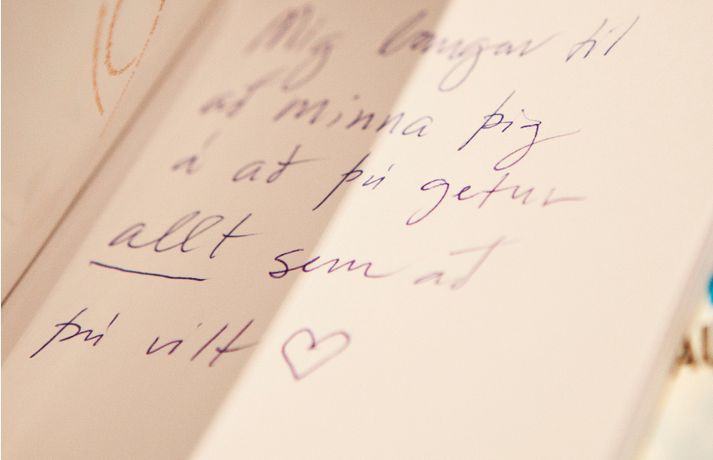 Mig langar til
að minna þig
á að þú getur
allt sem að
þú vilt